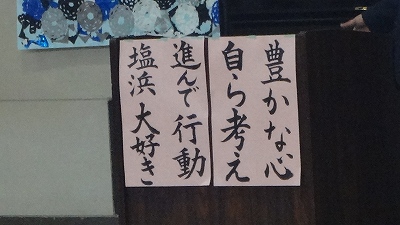 豊かな心
自ら考え
進んで行動
塩浜 大好き